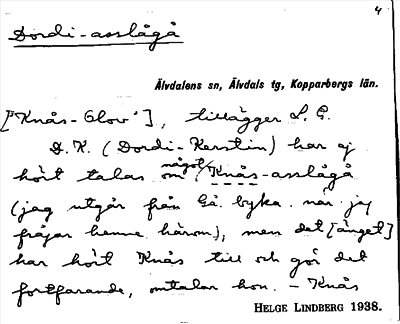 4
Dordi-asslågå
Älvdalens sn, Älvdals tg, Kopparbergs län.
["Knås-Olov"], tillägger L. G.
D. K. (Dordi-Kerstin) har ej
hört talas om något Knås-asslågå
(jag utgår från Gå. byka när jag
frågar henne härom), men det [änget]
har hört Knås till och gör det
fortfarande, omtalar hon. – Knås
HELGE LINDBERG 1938.